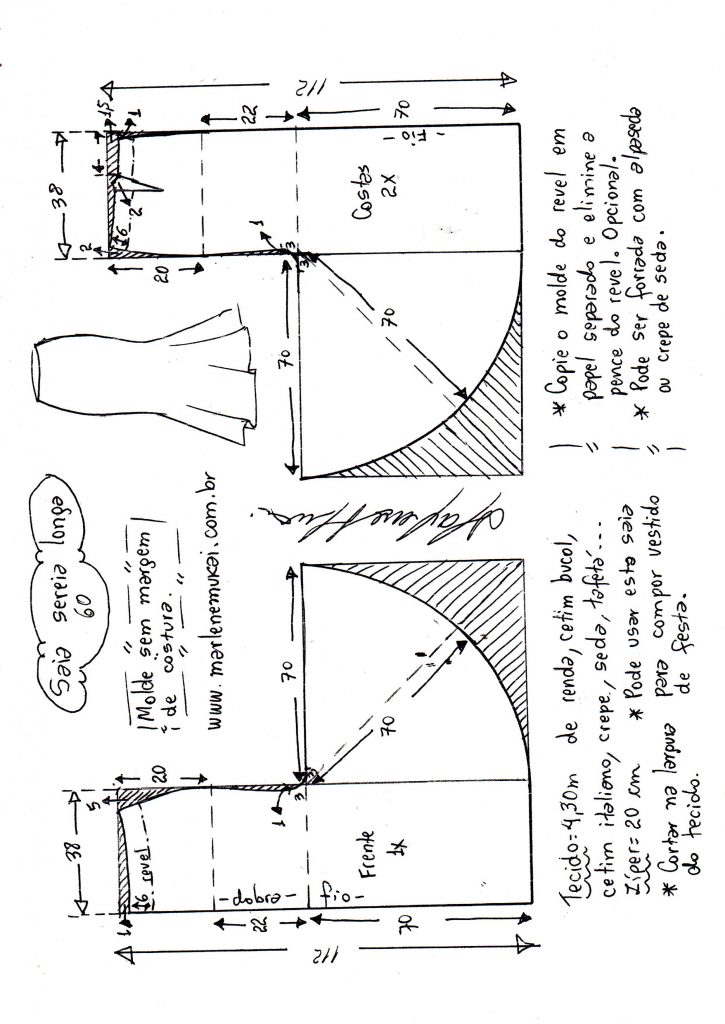 Saia sereia longa
60
Molde sem margem
de costura.
www.marlenemukai.com.br
112
38
1
6
revel
5
20
dobra
22
Frente
1X
fio
70
1
3
3
70
70
112
38
1,5
1
4
2
6
2
20
22
Costas
2X
fio
70
1
3
3
70
70
Tecido=4,30m de renda, cetim bucol,
cetim italiano, crepe, seda, tafetá...
Zíper= 20 cm * Pode usar esta saia
para compor vestido
de festa.
* Cortar na largura
do tecido.
* Copie o molde do revel em
papel separado e elimine a
pence do revel. Opcional.
* Pode ser forrada com alpaseda
ou crepe de seda.